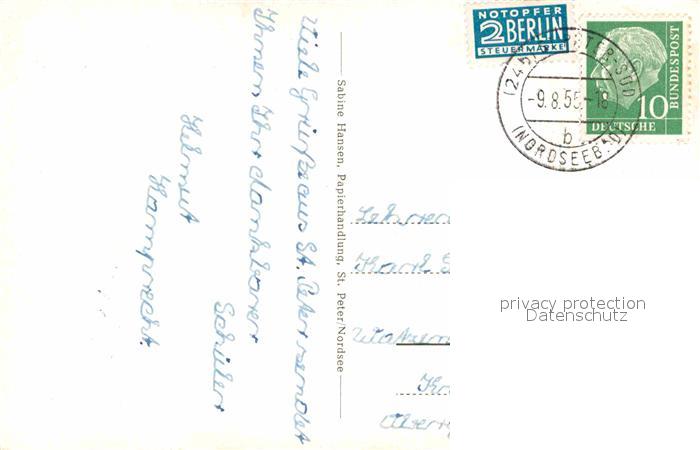 Viele Grüße aus St. Peter sendet
Ihnen Ihr dankbarer
Schüler
Helmut
Kamprecht.
Sabine Hansen, Papierhandlung, St. Peter/Nordsee
NOTOPFER
2 BERLIN
STEUERMARKE
DEUTSCHE
BUNDESPOST
10
-9.8.55.-18
b
(NORDSEEBAD)
Lehrer
Karl
privacy protection
Datenschutz